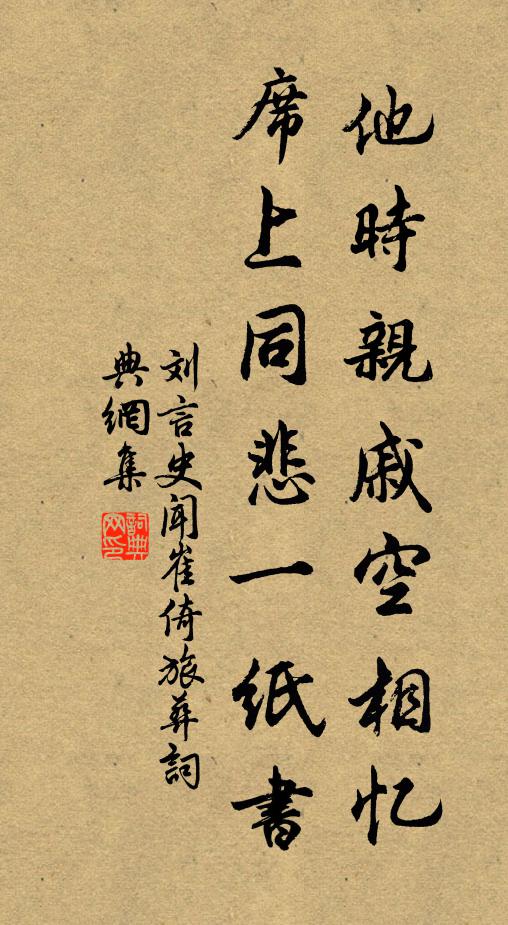 他時親戚空相忆
席上同悲一紙書
刘言史闻崔倚旅葬詞
典網集
詞典
网印